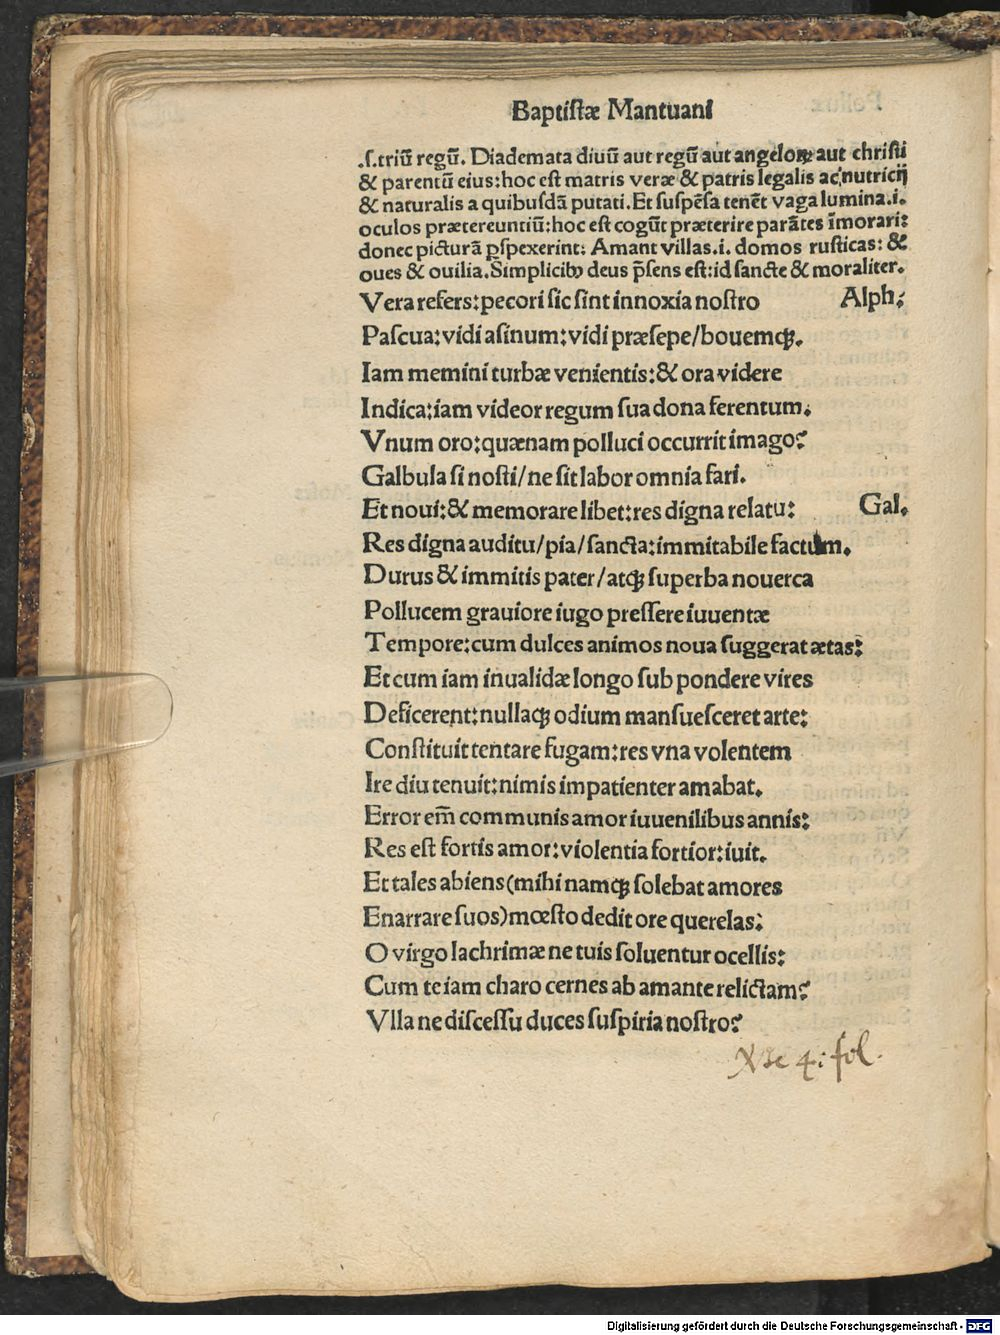 Baptistæ Mantuani
.s.triũ regũ. Diademata diuũ aut regũ aut angeloꝝ aut christi
& parentũ eius:hoc est matris veræ & patris legalis ac nutricij
& naturalis a quibusdã putati. Et suspẽsa tenẽt vaga lumina.i.
oculos prætereuntiũ:hoc est cogũt præterire parãtes ĩmorari:
donec picturã ꝑspexerint: Amant villas.i. domos rusticas: &
oues & ouilia. Simplicibꝰ deus p̃sens est:id sancte & moraliter.
Vera refers:pecori sic sint innoxia nostro Alph:
Pascua:vidi asinum:vidi præsepe/bouemqꝫ.
Iam memini turbæ venientis:& ora videre
Indica:iam videor regum sua dona ferentum.
Vnum oro:quænam polluci occurrit imago?
Galbula si nosti/ne sit labor omnia fari.
Et noui:& memorare libet:res digna relatu: Gal.
Res digna auditu/pia/sancta:immitabile factum.
Durus & immitis pater/atqꝫ superba nouerca
Pollucem grauiore iugo pressere iuuentæ
Tempore:cum dulces animos noua suggerat ætas:
Et cum iam inualidæ longo sub pondere vires
Deficerent:nullaqꝫ odium mansuesceret arte:
Constituit tentare fugam:res vna volentem
Ire diu tenuit:nimis impatienter amabat.
Error em̃ communis amor iuuenilibus annis:
Res est fortis amor:violentia fortior:iuit.
Et tales abiens(mihi namqꝫ solebat amores
Enarrare suos)mœsto dedit ore querelas:
O virgo lachrimæ ne tuis soluentur ocellis:
Cum te iam charo cernes ab amante relictam?
Vlla ne discessu duces suspiria nostro?
4: fol.
Digitalisierung gefördert durch die Deutsche Forschungsgemeinschaft - DFG